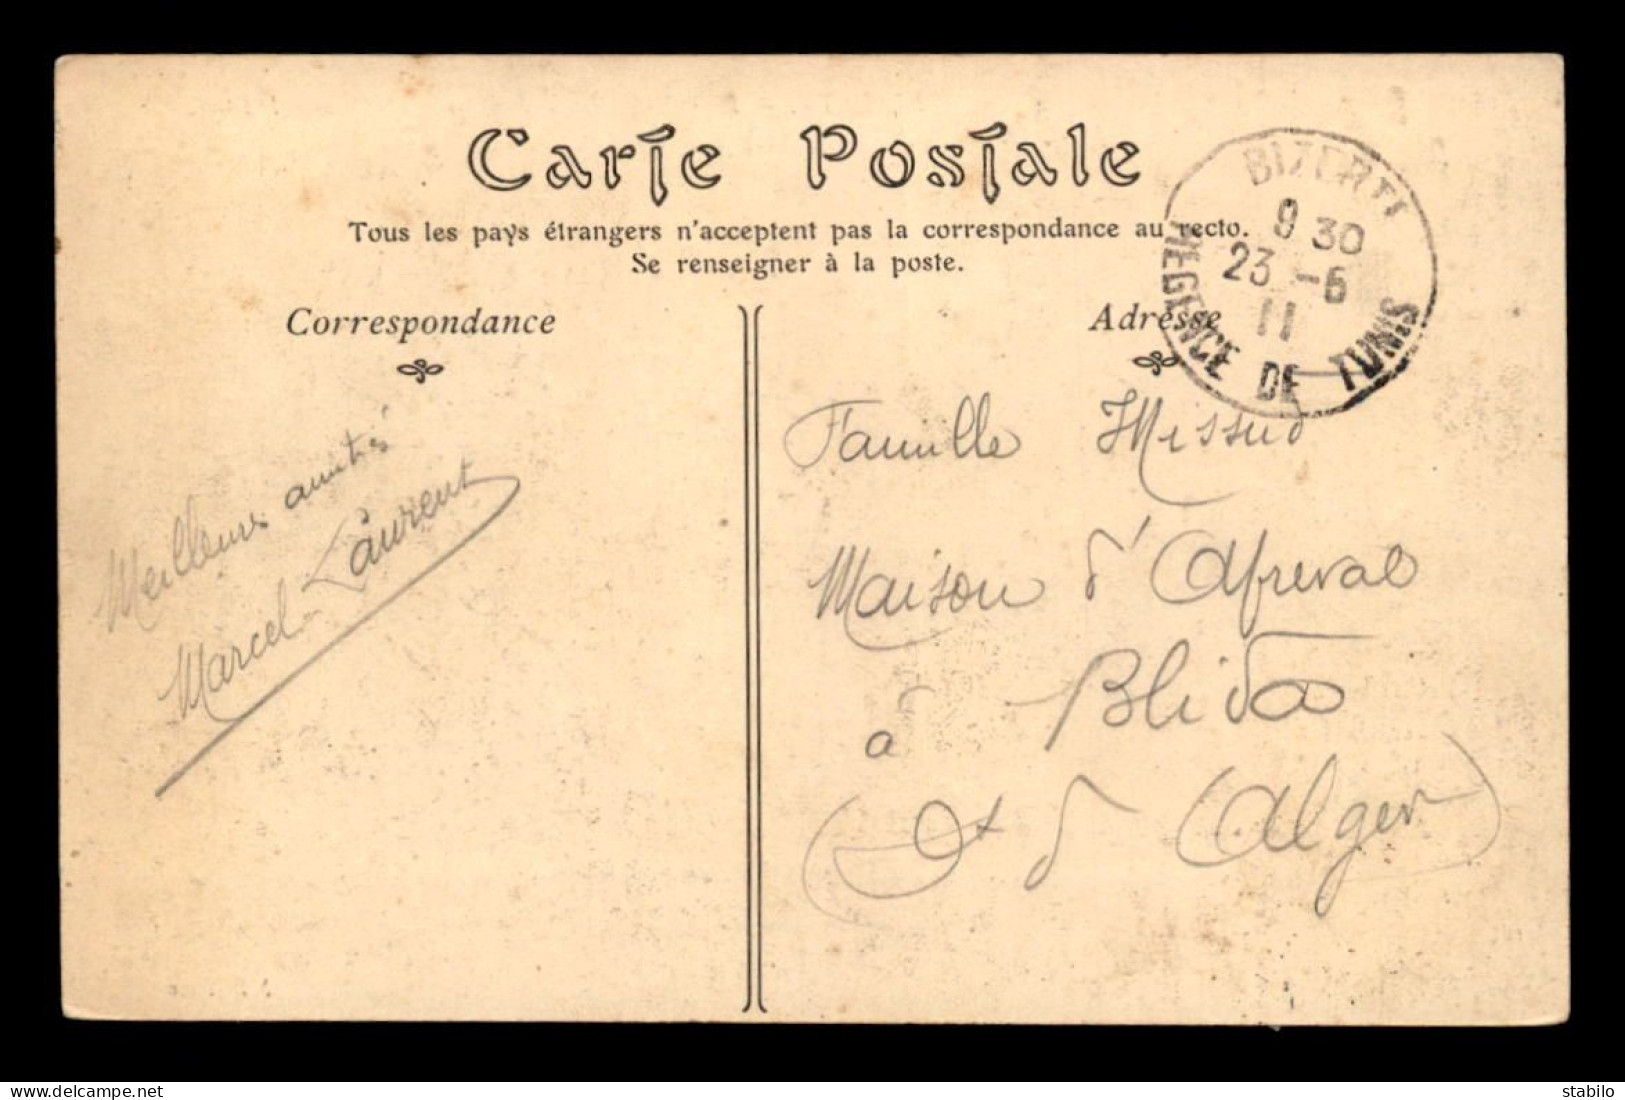 Carte Postale
Tous les pays étrangers n'acceptent pas la correspondance au recto.
Se renseigner à la poste.
Correspondance
Adresse
BIZERTE
9 30
23 -6
11
REGENCE DE TUNIS
Meilleures amitiés
Marcel Laurent
Famille Missud
Maison d'
à Blida
(Dt d'Alger)
delcampe.net
stabilo